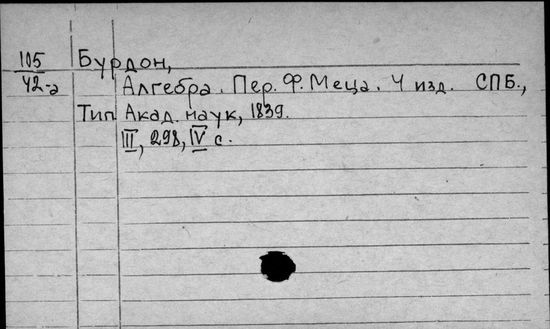 105 Бурдон,
42-а Алгебра. Пер. Ф. Меца. 4 изд. СПБ.,
Тип Акад. наук, 1839.
III, 298, IV с.